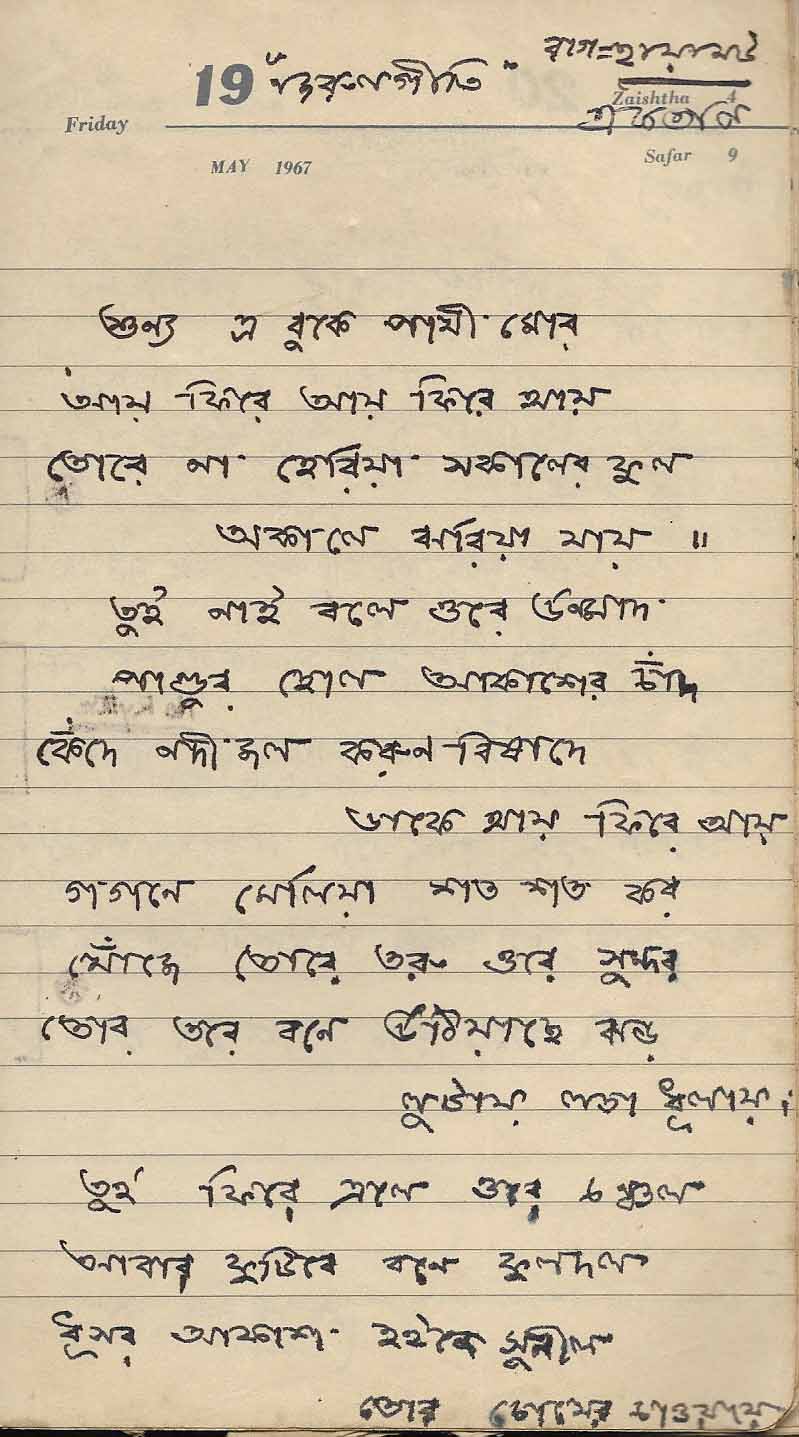 19 "নজরুলগীতি" রাগ=ছায়ানট
Zaishtha 4
Friday ত্রিতাল
MAY 1967 Safar 9
শুন্য এ বুকে পাখী মোর
আয় ফিরে আয় ফিরে আয়
তোরে না হেরিয়া সকালের ফুল
অকালে ঝরিয়া যায় ॥
তুই নাই বলে ওরে উনমাদ
পাণ্ডুর হোল আকাশের চাঁদ
কেঁদে নদী জল করুন বিষাদে
ডাকে আয় ফিরে আয়
গগনে মেলিয়া শত শত কর
খোঁজে তোরে তরু ওরে সুন্দর
তোর তরে বনে উঠিয়াছে ঝড়
লুটায় লতা ধূলায়।
তুই ফিরে এলে ওরে চঞ্চল
আবার ফুটিবে বনে ফুলদল
ধূসর আকাশ হইবে সুনীল
তোর চোখের চাওয়ায়